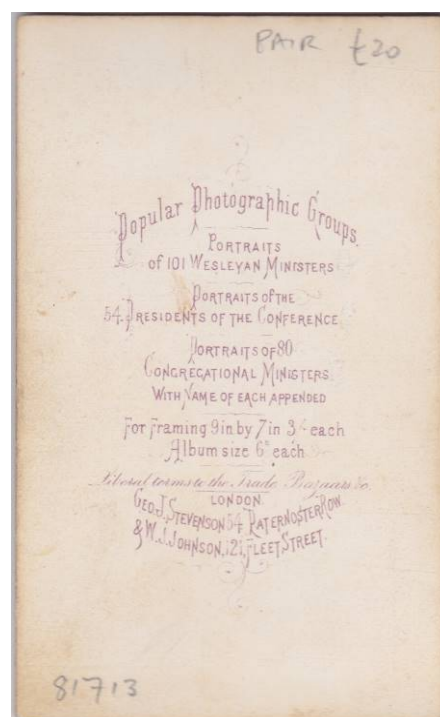 PAIR £20
Popular Photographic Groups.
PORTRAITS
of 101 WESLEYAN MINISTERS
PORTRAITS OF THE
54. PRESIDENTS OF THE CONFERENCE
PORTRAITS OF 80
CONGREGATIONAL MINISTERS
WITH NAME OF EACH APPENDED
For Framing 9in by 7in 3/- each
Album size 6ᴰ each
Liberal terms to the Trade Bazaars &c.
LONDON.
GEO. J. STEVENSON 54 PATERNOSTER ROW.
& W. J. JOHNSON, 121, FLEET STREET.
81713